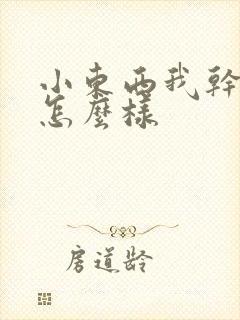 小東西我幹
怎麼樣
房道龄